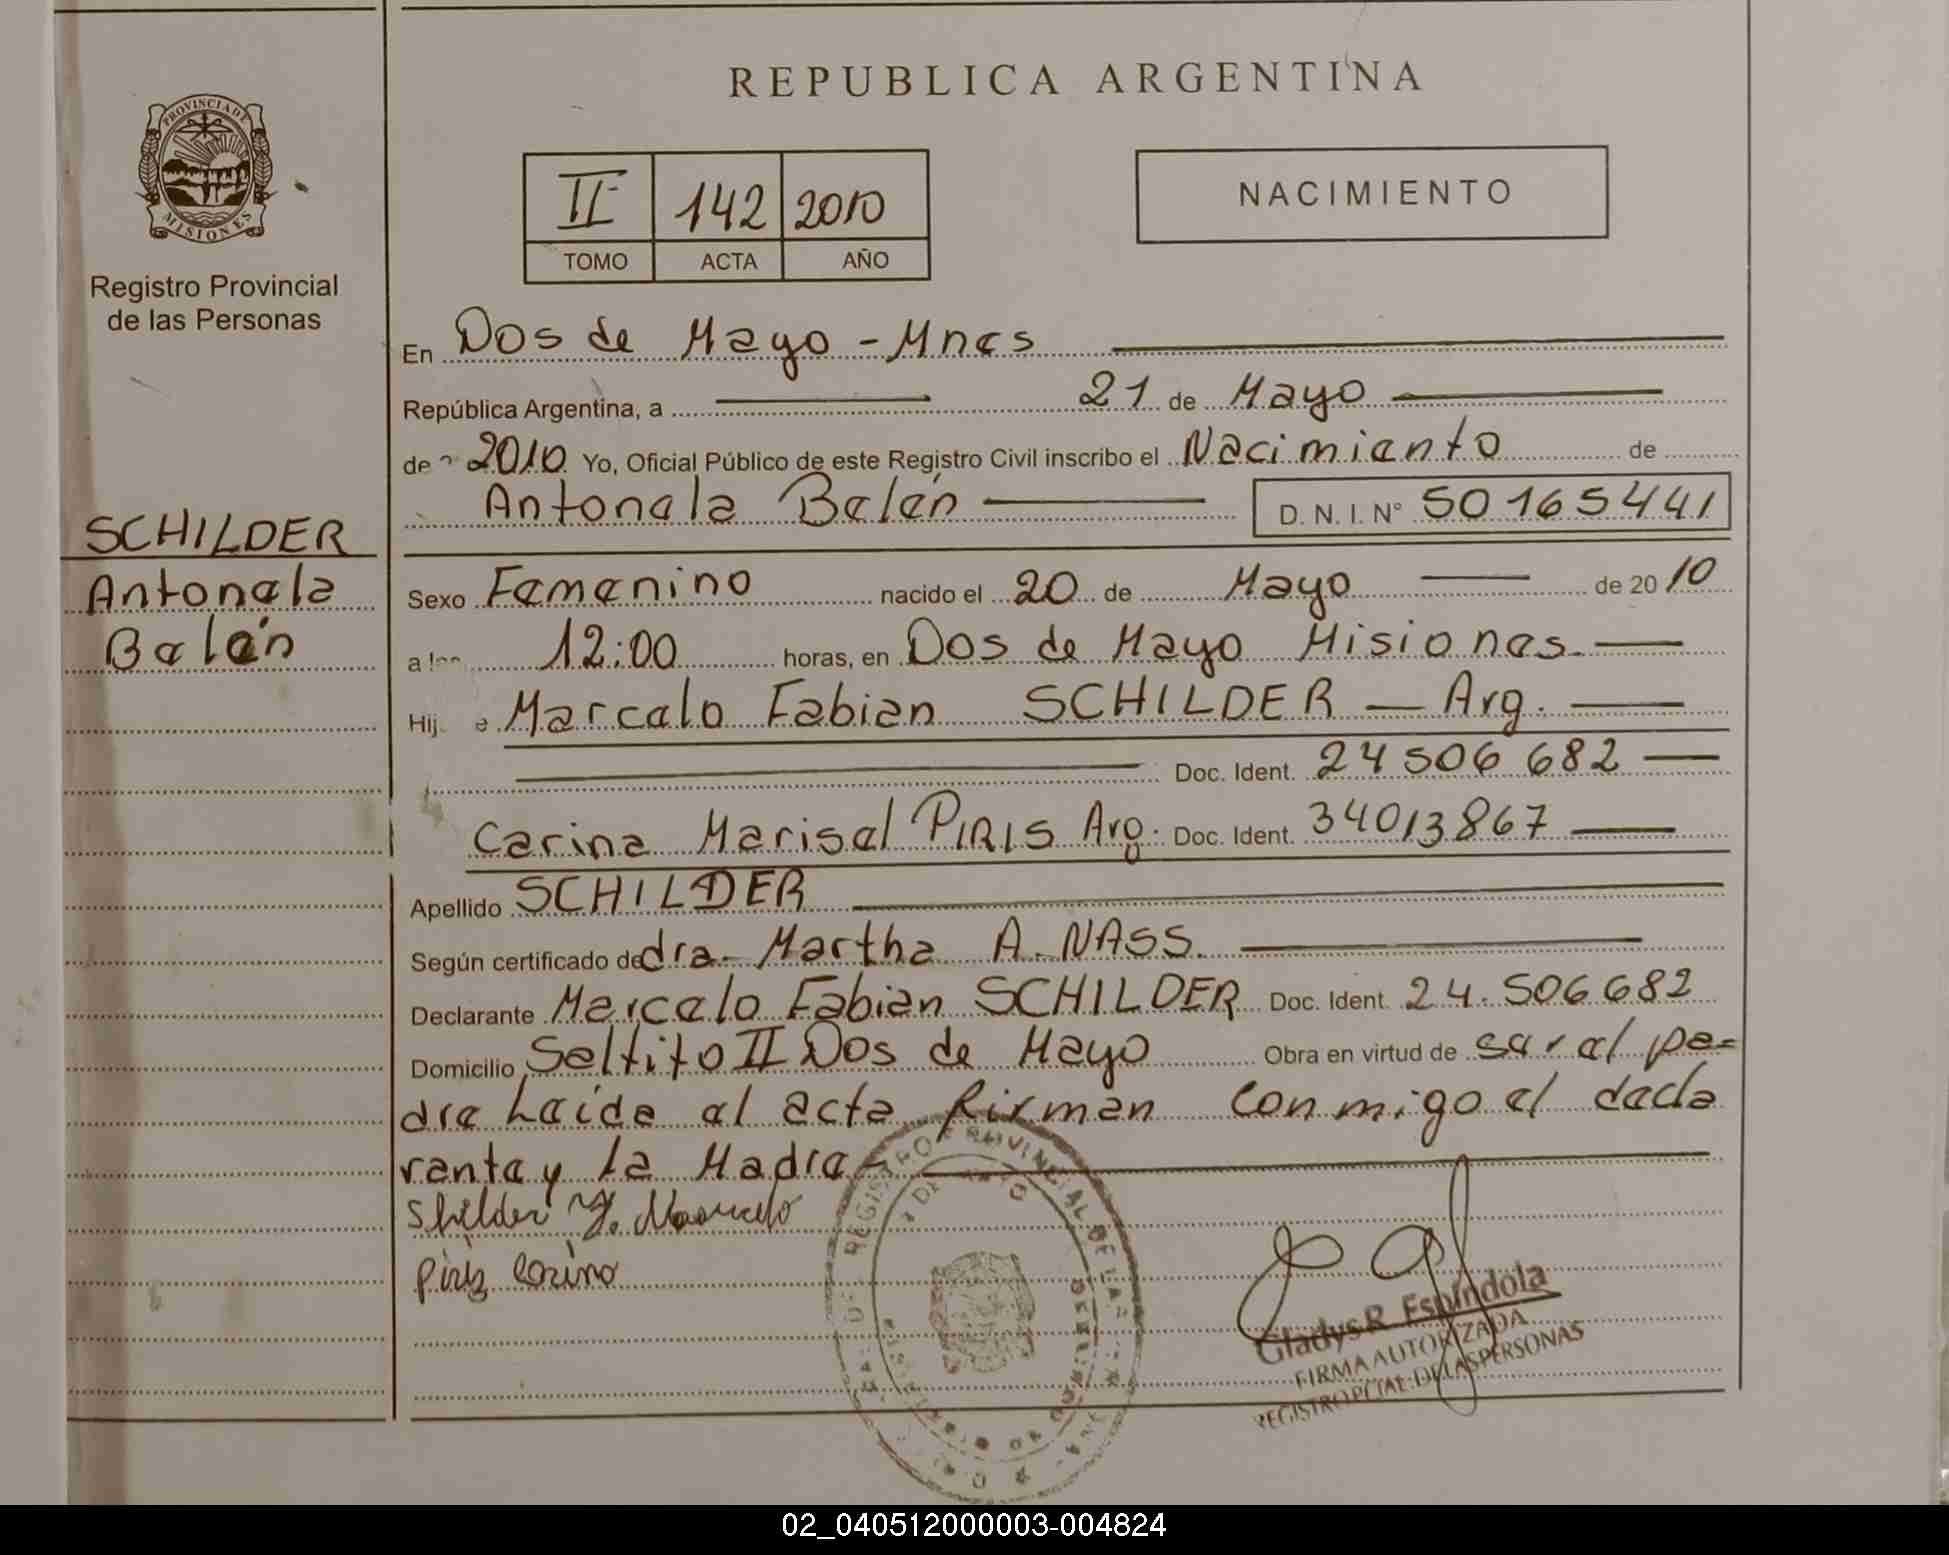 REPUBLICA ARGENTINA
PROVINCIA DE
MISIONES
Registro Provincial
de las Personas
II 142 2010
TOMO ACTA AÑO
NACIMIENTO
En Dos de Mayo - Mnes
República Argentina, a 21 de Mayo
de 2010 Yo, Oficial Público de este Registro Civil inscribo el Nacimiento de
Antonela Belén D. N. I. N° 50165441
SCHILDER
Antonela
Belén
Sexo Femenino nacido el 20 de Mayo de 2010
a 12:00 horas, en Dos de Mayo Misiones.
Hij e Marcelo Fabian SCHILDER — Arg.
Doc. Ident. 24506682
Carina Marisel PIRIS Arg. Doc. Ident. 34013867
Apellido SCHILDER
Según certificado de dra. Martha A. NASS.
Declarante Marcelo Fabian SCHILDER Doc. Ident. 24.506682
Domicilio Saltito II Dos de Mayo Obra en virtud de ser el pa-
dre Leida el acta firman conmigo el decla
rante y la Madre-
Shilder F. Marcelo
Piriz Carina
REGISTRO PROVINCIAL DE LAS
Gladys R. Espíndola
FIRMA AUTORIZADA
REGISTRO PCIAL. DE LAS PERSONAS
02_040512000003-004824